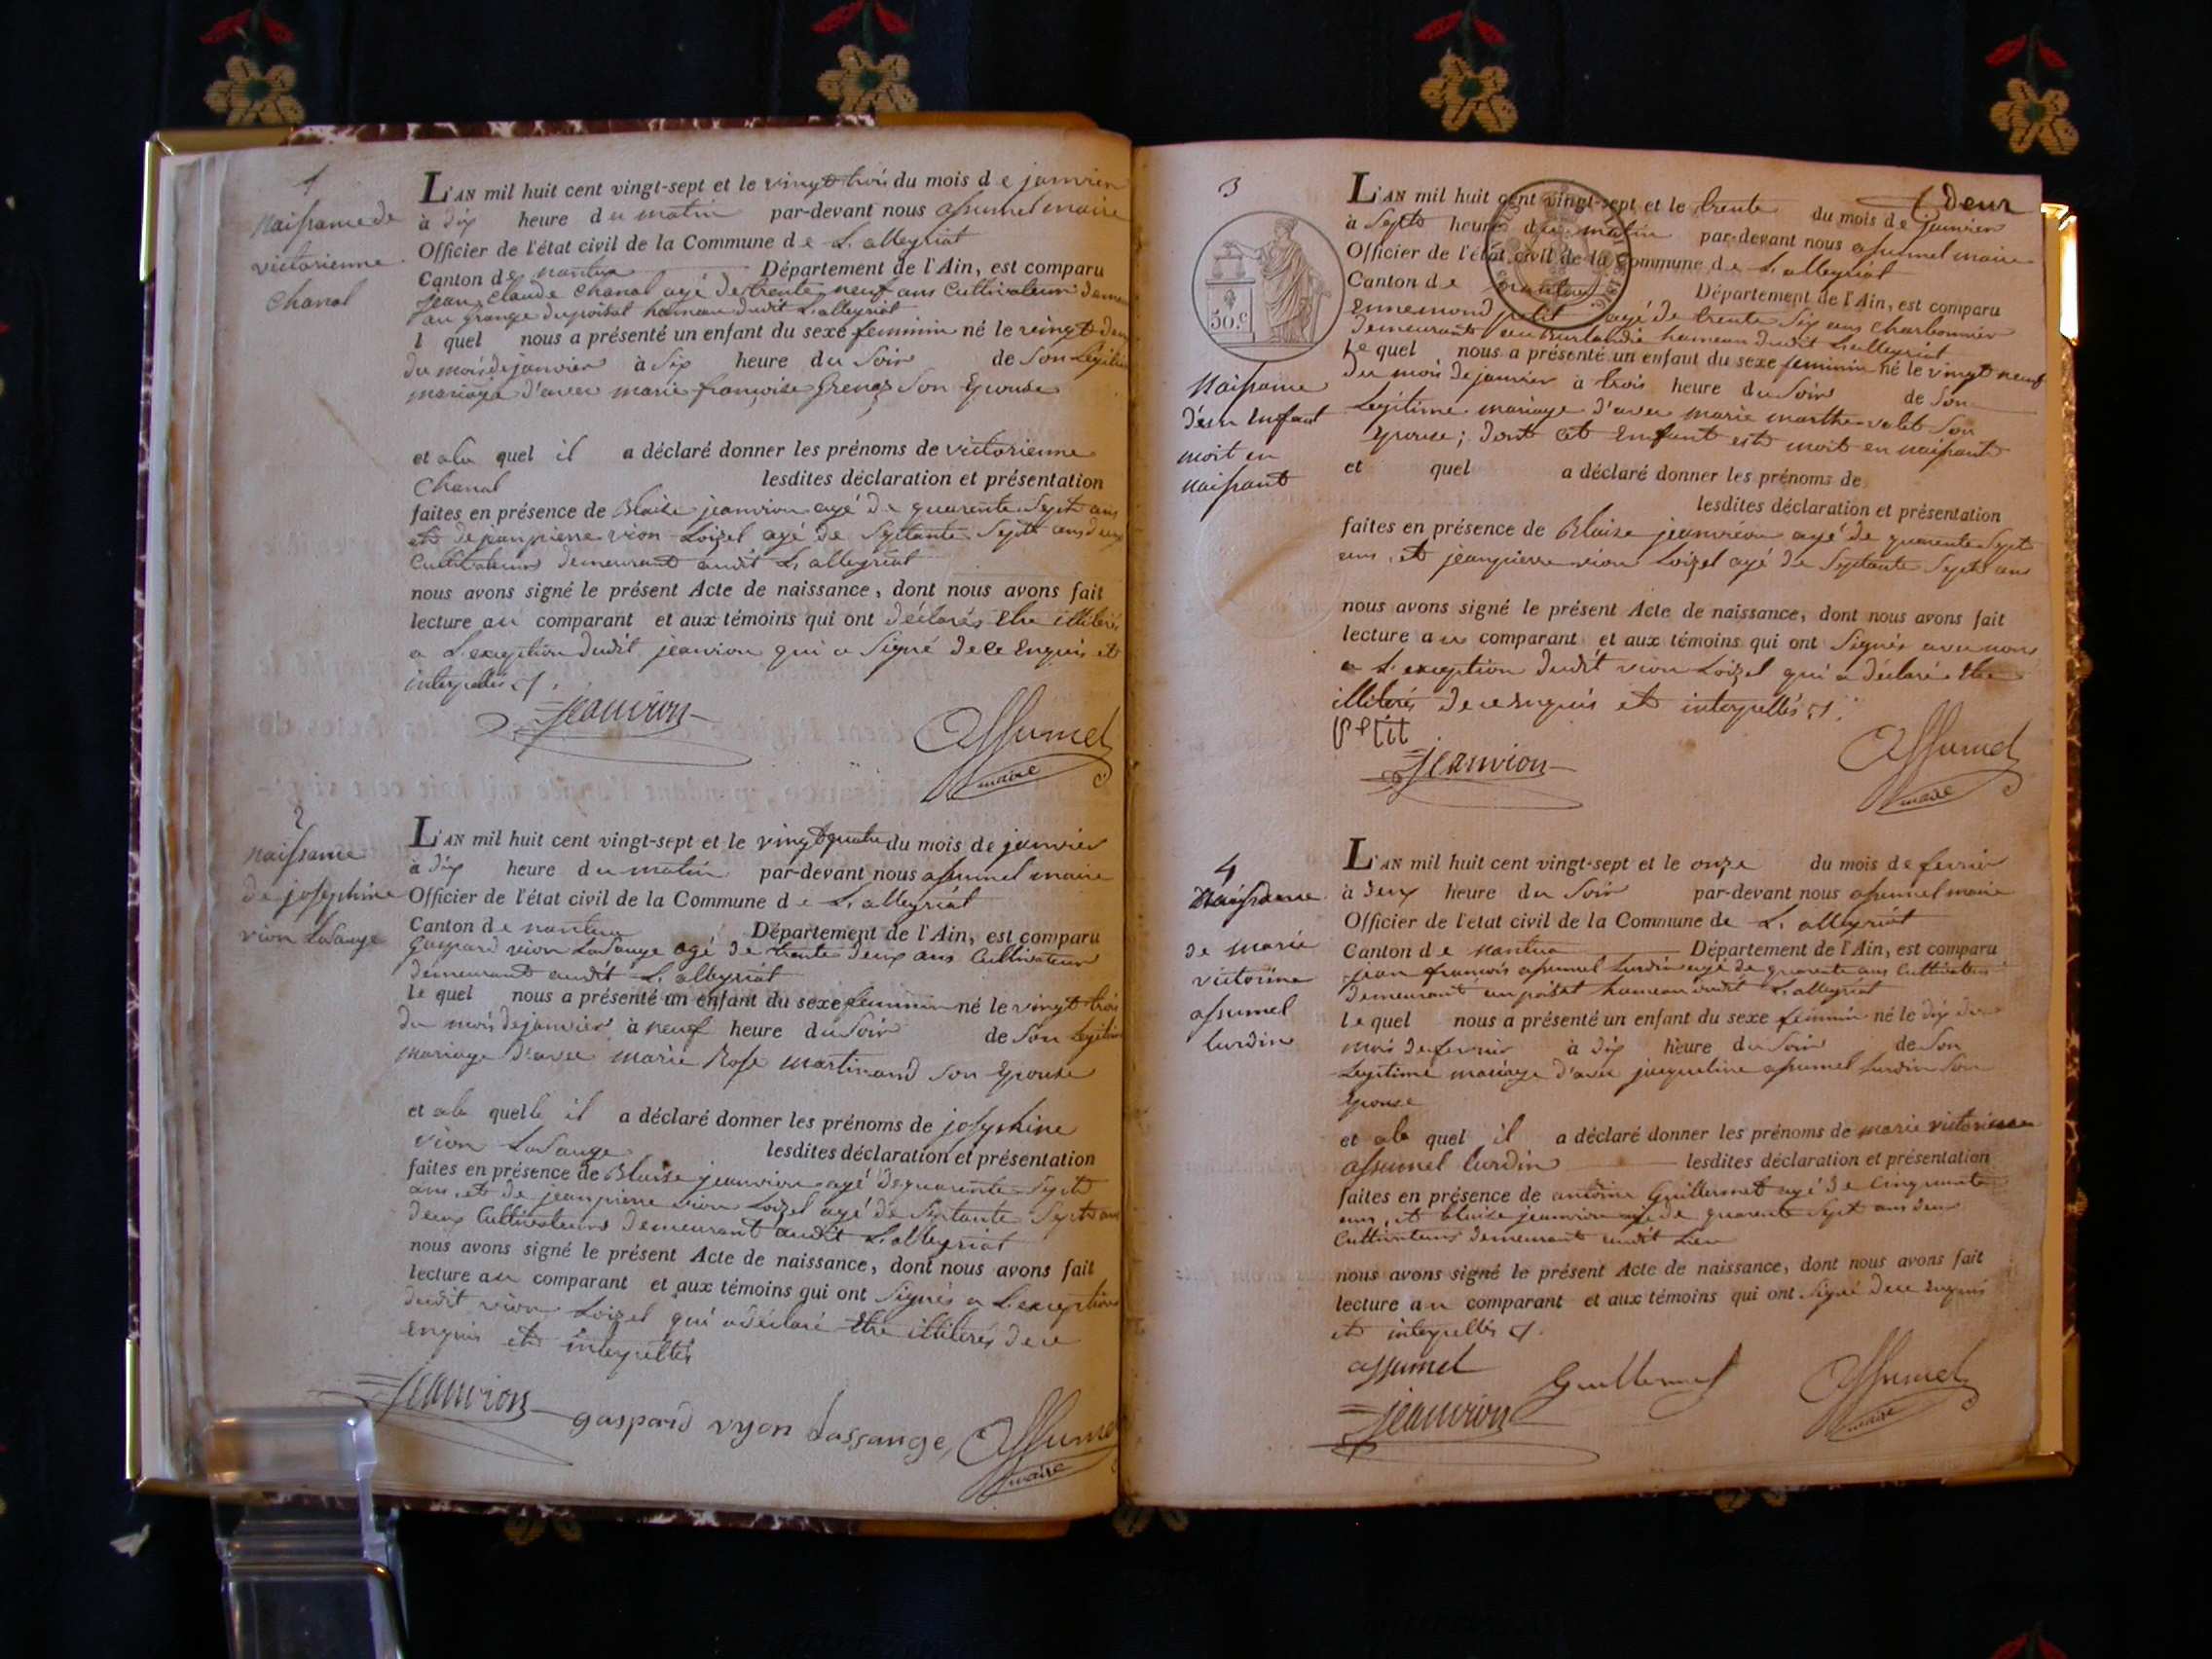 1
Naissance de
victorienne
Chanal
L'AN mil huit cent vingt-sept et le vingt trois du mois de janvier
à dix heure du matin par-devant nous assumel maire
Officier de l'état civil de la Commune de L. alleyriat
Canton de nantua Département de l'Ain, est comparu
jean Claude Chanal agé de trente neuf ans Cultivateur
au grange du poisat hameau dudit L. alleyriat
l quel nous a présenté un enfant du sexe feminin né le vingt deux
du mois de janvier à six heure du soir de son Legitime
mariage d'avec marie françoise Grenoz son Epouse
et ala quel il a déclaré donner les prénoms de victorienne
Chanal lesdites déclaration et présentation
faites en présence de Blaise jeanvion agé de quarente sept ans
et de jean pierre vion Loizel agé de septante sept ans deux
Cultivateurs demeurant audit L. alleyriat
nous avons signé le présent Acte de naissance, dont nous avons fait
lecture au comparant et aux témoins qui ont déclarés Etre illiterés
a L'exception dudit jeanvion qui a signé de ce Enquis et
interpellés
jeanvion
Assumel
maire
2
naissance
de josephine
vion Lasauge
L'AN mil huit cent vingt-sept et le vingt quatre du mois de janvier
à dix heure du matin par-devant nous assumel maire
Officier de l'état civil de la Commune de L. alleyriat
Canton de nantua Département de l'Ain, est comparu
Gaspard vion Lasauge agé de trente deux ans Cultivateur
demeurant audit L. alleyriat
le quel nous a présenté un enfant du sexe feminin né le vingt trois
du mois de janvier à neuf heure du soir de son Legitime
mariage d'avec marie Rose martinand son Epouse
et ala quelle il a déclaré donner les prénoms de josephine
vion Lasauge lesdites déclaration et présentation
faites en présence de Blaise jeanvion agé de quarente sept
ans, et de jean pierre vion Loizel agé de septante sept ans
deux Cultivateurs demeurant audit L. alleyriat
nous avons signé le présent Acte de naissance, dont nous avons fait
lecture au comparant et aux témoins qui ont signés a L'exception
dudit vion Loizel qui a déclaré Etre illiterés de ce
Enquis et interpellés
jeanvion
gaspard vyon Lassange
Assumel
maire
3
deux
50.c
Naissance
d'un Enfant
mort en
naissant
L'AN mil huit cent vingt-sept et le trente du mois de janvier
à Sept heure du matin par-devant nous assumel maire
Officier de l'état civil de la Commune de L. alleyriat
Canton de nantua Département de l'Ain, est comparu
Ennemond petit agé de trente six ans Charbonnier
demeurant hameau dudit L. alleyriat
le quel nous a présenté un enfant du sexe feminin né le vingt neuf
du mois de janvier à trois heure du soir de son
Legitime mariage d'avec marie marthe valet son
Epouse; dont cet Enfant est mort en naissant
et quel a déclaré donner les prénoms de
lesdites déclaration et présentation
faites en présence de Blaise jeanvion agé de quarente sept
ans, et jean pierre vion Loizel agé de septante sept ans
nous avons signé le présent Acte de naissance, dont nous avons fait
lecture au comparant et aux témoins qui ont signés avec nous
a L'exception dudit vion Loizel qui a déclaré Etre
illiterés de ce Enquis et interpellés
Petit
jeanvion
Assumel
maire
4
Naissance
de marie
victorine
assumel
lurdin
L'AN mil huit cent vingt-sept et le onze du mois de fevrier
à deux heure du soir par-devant nous assumel maire
Officier de l'état civil de la Commune de L. alleyriat
Canton de nantua Département de l'Ain, est comparu
jean françois assumel lurdin agé de quarente ans Cultivateur
demeurant au poisat hameau dudit L. alleyriat
le quel nous a présenté un enfant du sexe feminin né le dix du
mois de fevrier à dix heure du soir de son
Legitime mariage d'avec jacqueline assumel lurdin son
Epouse
et ala quel il a déclaré donner les prénoms de marie victorine
assumel lurdin lesdites déclaration et présentation
faites en présence de antoine Guillermet agé de Cinquante
ans, et blaise jeanvion agé de quarente sept ans deux
Cultivateurs demeurant audit Lieu
nous avons signé le présent Acte de naissance, dont nous avons fait
lecture au comparant et aux témoins qui ont signé de ce Enquis
et interpellés
assumel
Guillermet
Assumel
maire
jeanvion